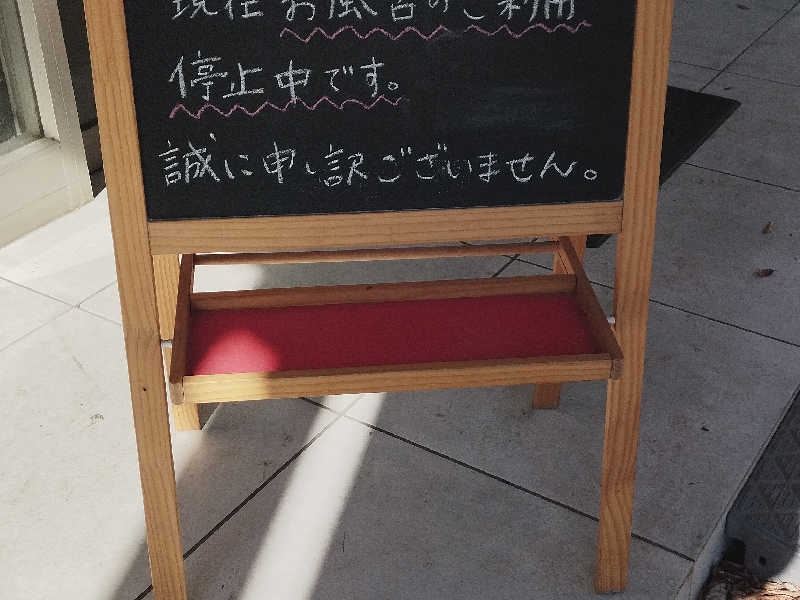 現在お風呂のご利用
停止中です。
誠に申し訳ございません。